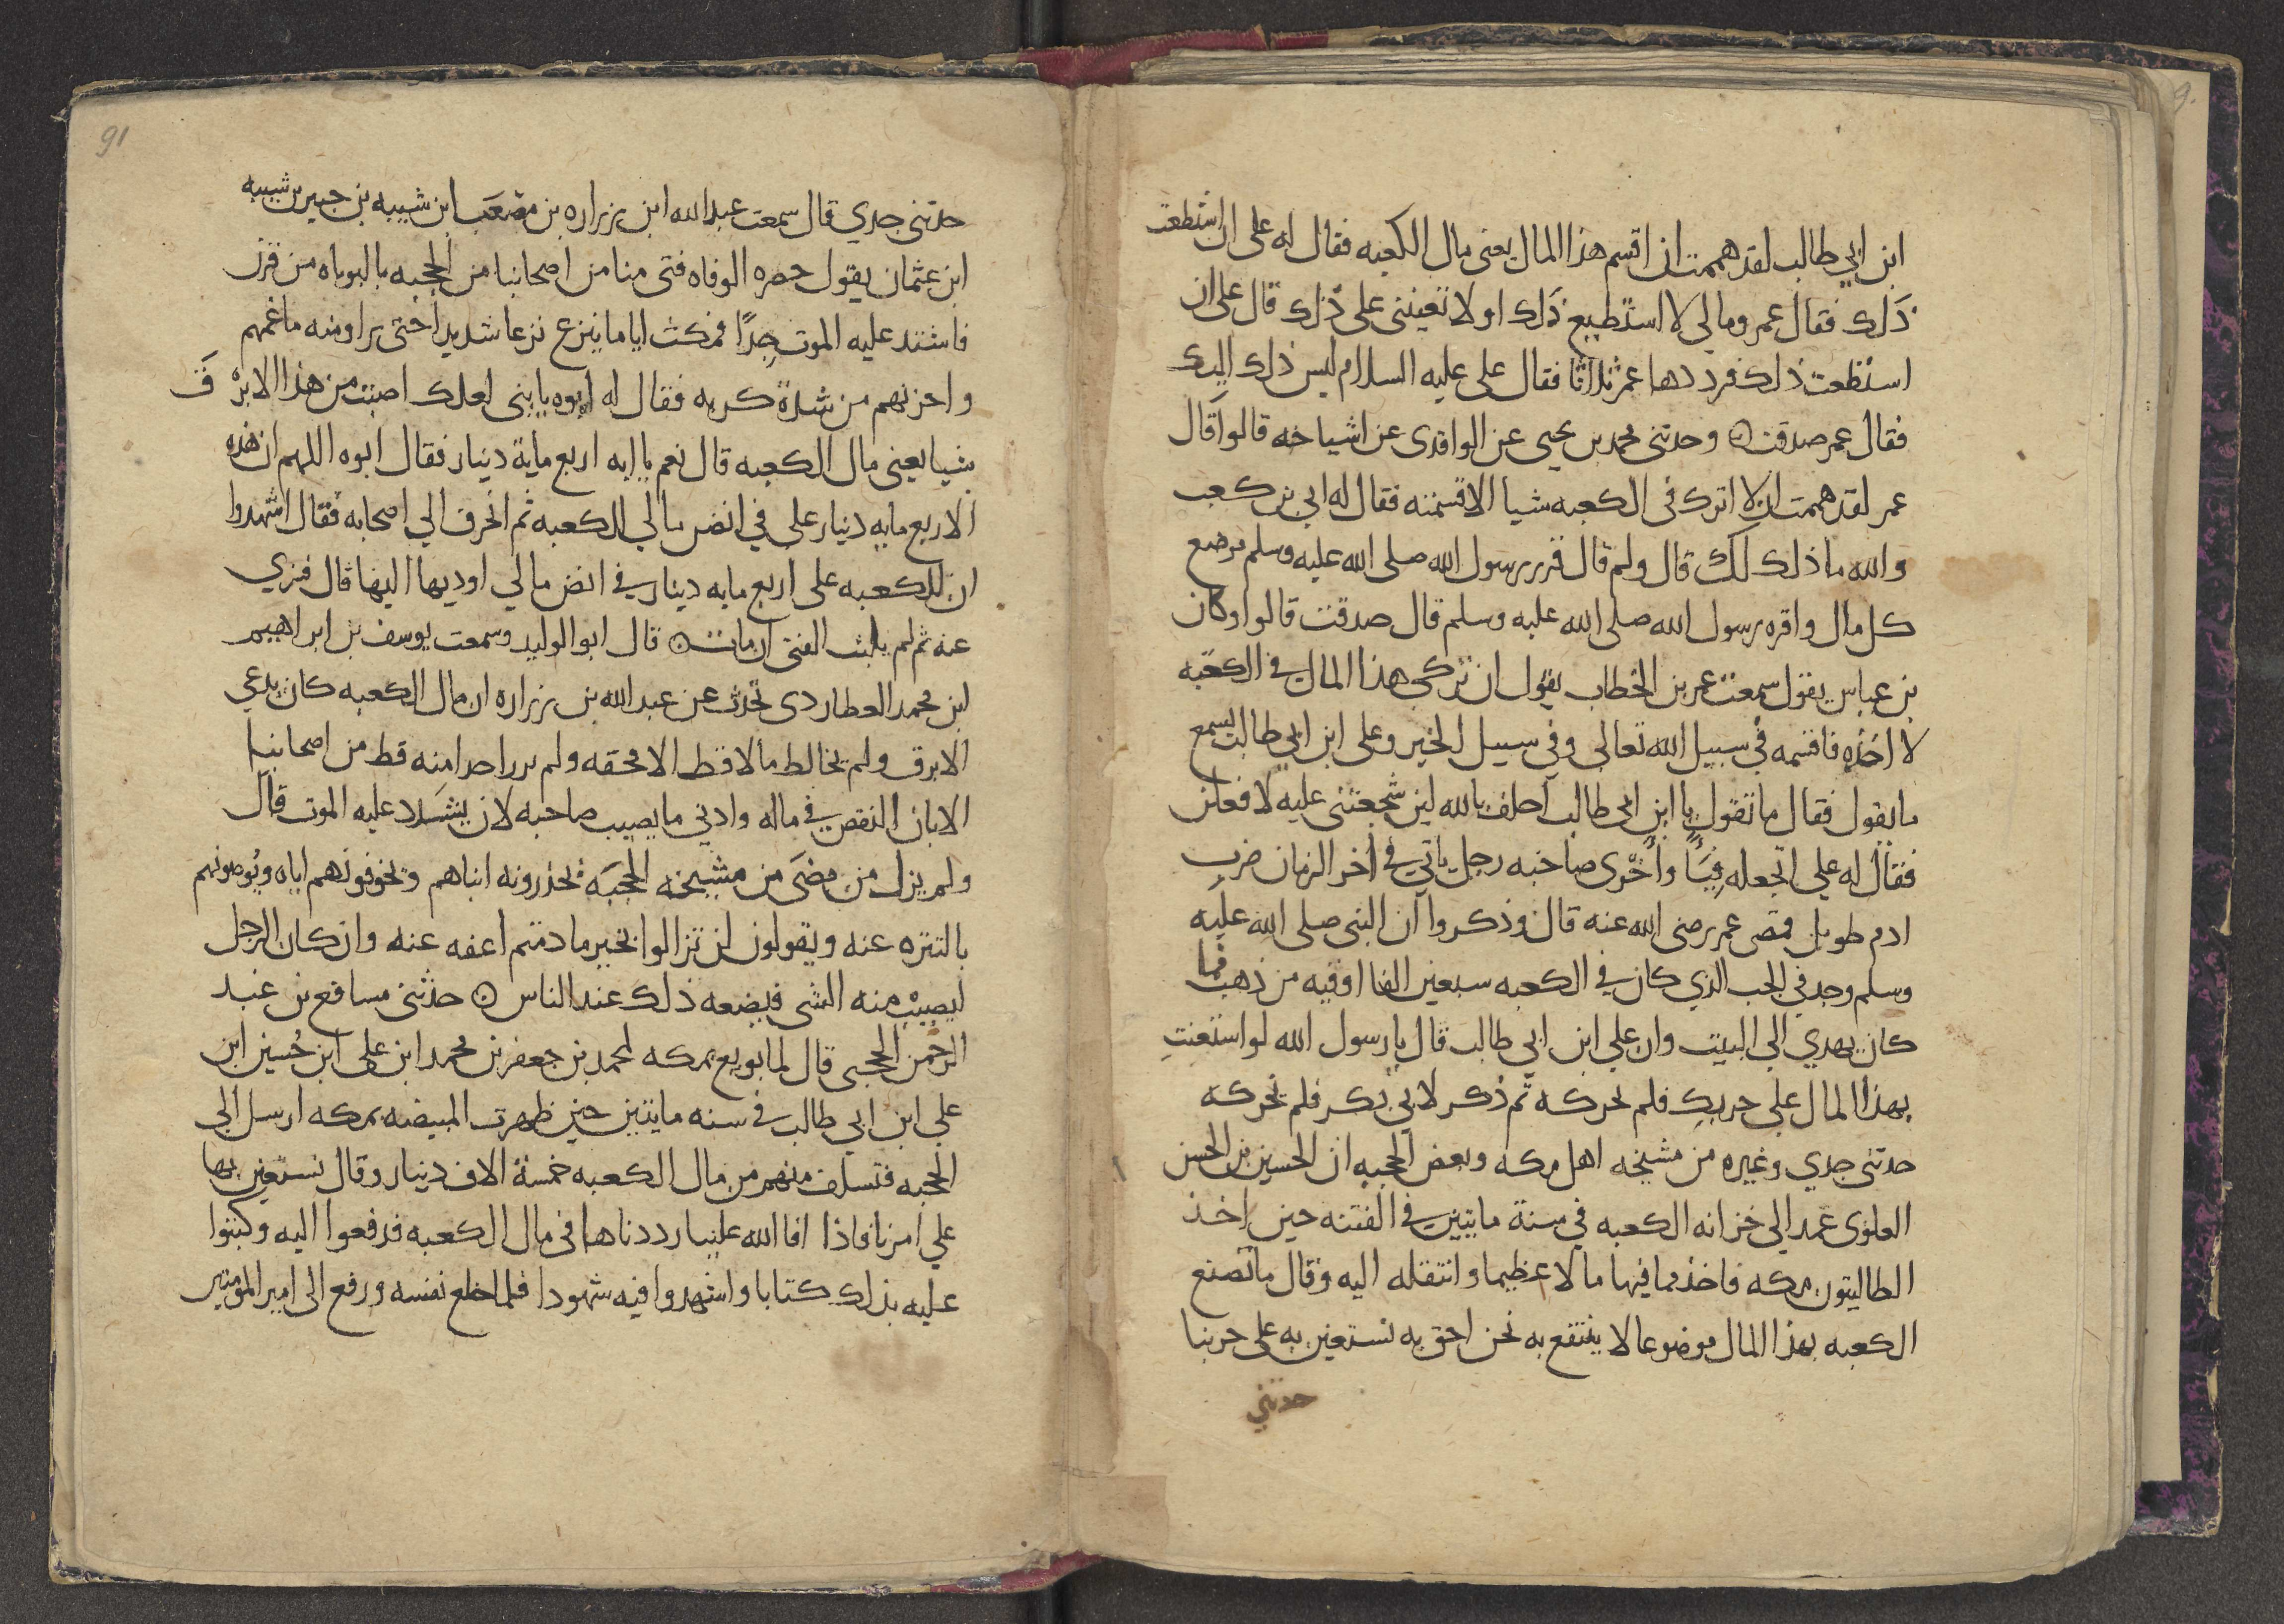 ابن ابي طالب لقد هممت ان اقسم هذا المال يعنى مال الكعبه فقال له على ان استطعت
ذلك فقال عمر ومالي لا استطيع ذلك اولا تعيننى على ذلك قال على ان
استطعت ذلك فرددها عمر ثلاثا فقال على عليه السلام ليس ذلك اليك
فقال عمر صدقت وحدثنى محمد بن يحيى عن الواقدى عن اشياخه قالوا قال
عمر لقد هممت ان لا اترك فى الكعبه شيا الا قسمته فقال له ابي بن كعب
والله ما ذلك لك قال ولم قال قرر رسول الله صلى الله عليه وسلم موضع
كل مال واقره رسول الله صلى الله عليه وسلم قال صدقت قالوا وكان
بن عباس يقول سمعت عمر بن الخطاب يقول ان تركي هذا المال في الكعبه
لا اخذه فاقسمه في سبيل الله تعالى وفي سبيل الخير وعلى ابن ابي طالب يسمع
ما يقول فقال ما تقول يا ابن ابى طالب احلف بالله لين شجعتنى عليه لافعلن
فقال له علي اتجعله فيئا واحرى صاحبه رجل ياتي في اخر الزمان ضرب
ادم طويل فمضى عمر رضى الله عنه قال وذكروا ان النبى صلى الله عليه
وسلم وجد في الجب الذي كان في الكعبه سبعين الفا اوقيه من ذهب مما
كان يهدي الي البيت وان علي ابن ابي طالب قال يا رسول الله لو استعنت
بهذا المال على حربك فلم يحركه ثم ذكر لابي بكر فلم يحركه
حدثنى جدي وغيره من مشيخه اهل مكه وبعض الحجبه ان الحسين بن الحسن
العلوى عمد الي خزانه الكعبه في سنة مايتين في الفتنه حين اخذ
الطالبيون مكه فاخذ مما فيها مالا عظيما وانتقله اليه وقال ما تصنع
الكعبه بهذا المال موضوعا لا ينتفع به نحن احق به نستعين به على حربنا
حدثني
91
حدثنى جدي قال سمعت عبد الله ابن زراره بن مصعب ابن شيبه بن جبير بن شيبه
ابن عثمان يقول حضره الوفاه فتى منا من اصحابنا من الحجبه بالبوباه من قرن
فاشتد عليه الموت جدا فمكث اياما ينزع نزعا شديدا حتى راو منه ما غمهم
واحزنهم من شدة كربه فقال له ابوه يا بنى لعلك اصبت من هذا الابرق
شيا يعنى مال الكعبه قال نعم يا ابه اربع ماية دينار فقال ابوه اللهم ان هذه
الاربع مايه دينار على في انض مالي للكعبه ثم انحرف الي اصحابه فقال اشهدوا
ان للكعبه على اربع مايه دينار في انض مالي اوديها اليها قال فسري
عنه ثم لم يلبث الفتى ان مات قال ابو الوليد وسمعت يوسف بن ابراهيم
ابن محمد العطاردى يحدث عن عبد الله بن زراره ان مال الكعبه كان يدعي
الابرق ولم يخالط مالا قط الا محقه ولم يرزا احدا منه قط من اصحابنا
الا بان النقص في ماله وادني ما يصيب صاحبه لان يشدد عليه الموت قال
ولم يزل من مضى من مشيخه الحجبه يحذرونه ابناهم ويخوفونهم اياه ويوصونهم
بالتنزه عنه ويقولون لن تزالوا بخير ما دمتم اعفه عنه وان كان الرجل
ليصيب منه الشى فيضعه ذلك عند الناس حدثنى مسافع بن عبد
الرحمن الحجبى قال لما بويع بمكه لمحمد بن جعفر بن محمد ابن على ابن حسين ابن
علي ابن ابي طالب في سنه مايتين حين ظهرت المبيضه بمكه ارسل الى
الحجبه فتسلف منهم من مال الكعبه خمسة الاف دينار وقال نستعين بها
علي امرنا فاذا افا الله علينا رددناها في مال الكعبه فدفعوا اليه وكتبوا
عليه بذلك كتابا واشهدوا فيه شهودا فلما خلع نفسه ورفع الى امير المومنين